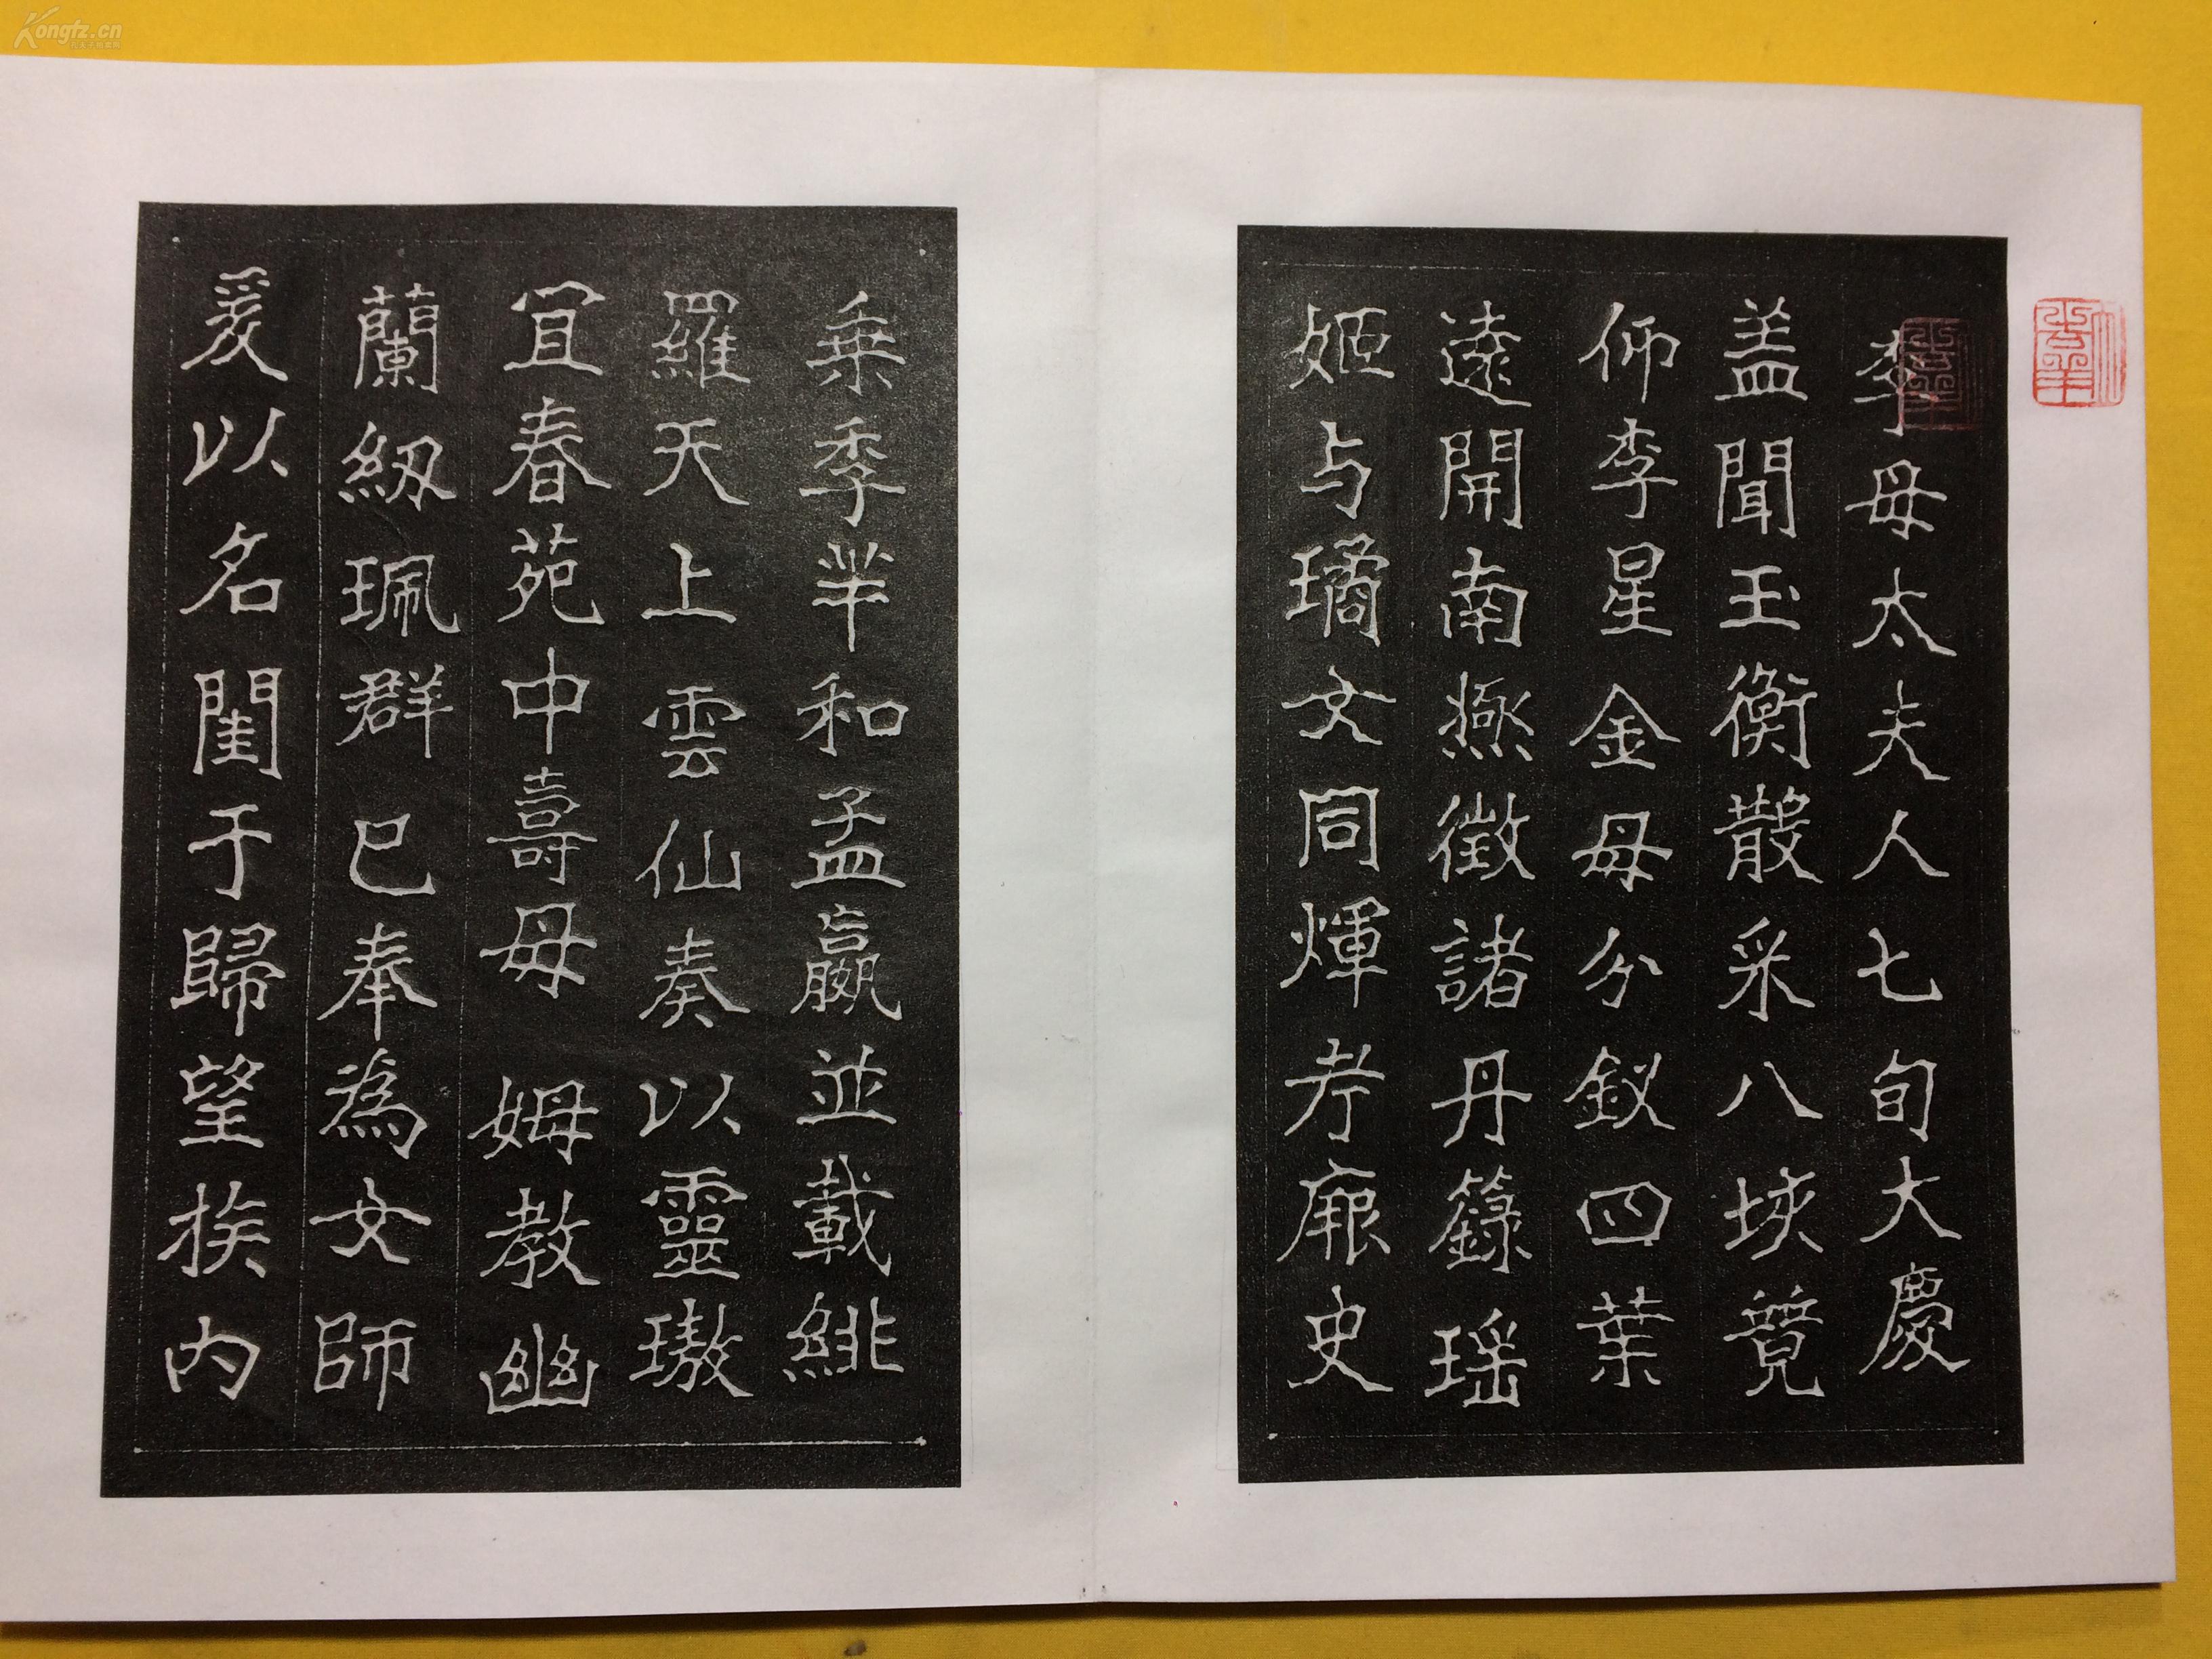 李母太夫人七旬大慶
盖聞玉衡散采八垓竟
仰李星金母分釵四葉
遠開南燕徵諸丹籙瑶
姬与璚文同煇考厥史
乘季羋和孟嬴並載緋
羅天上雲仙奏以靈璈
宜春苑中壽母姆教幽
蘭紉珮群已奉為女師
爰以名閨于歸望族内
Kongfz.cn